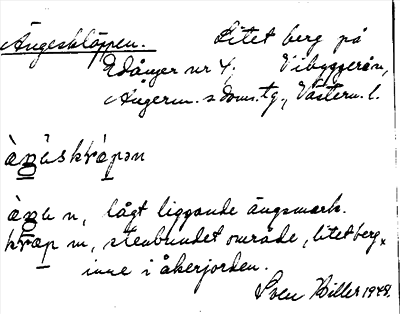 Ängesklöppen. Litet berg på
Edånger nr 4. Vibyggerån,
Ångerm. s doms. tg., Västern. l.
lågt liggande ängsmark.
m, stenbundet område, litet berg,
inne i åkerjorden.
Sven Hillis 1948.